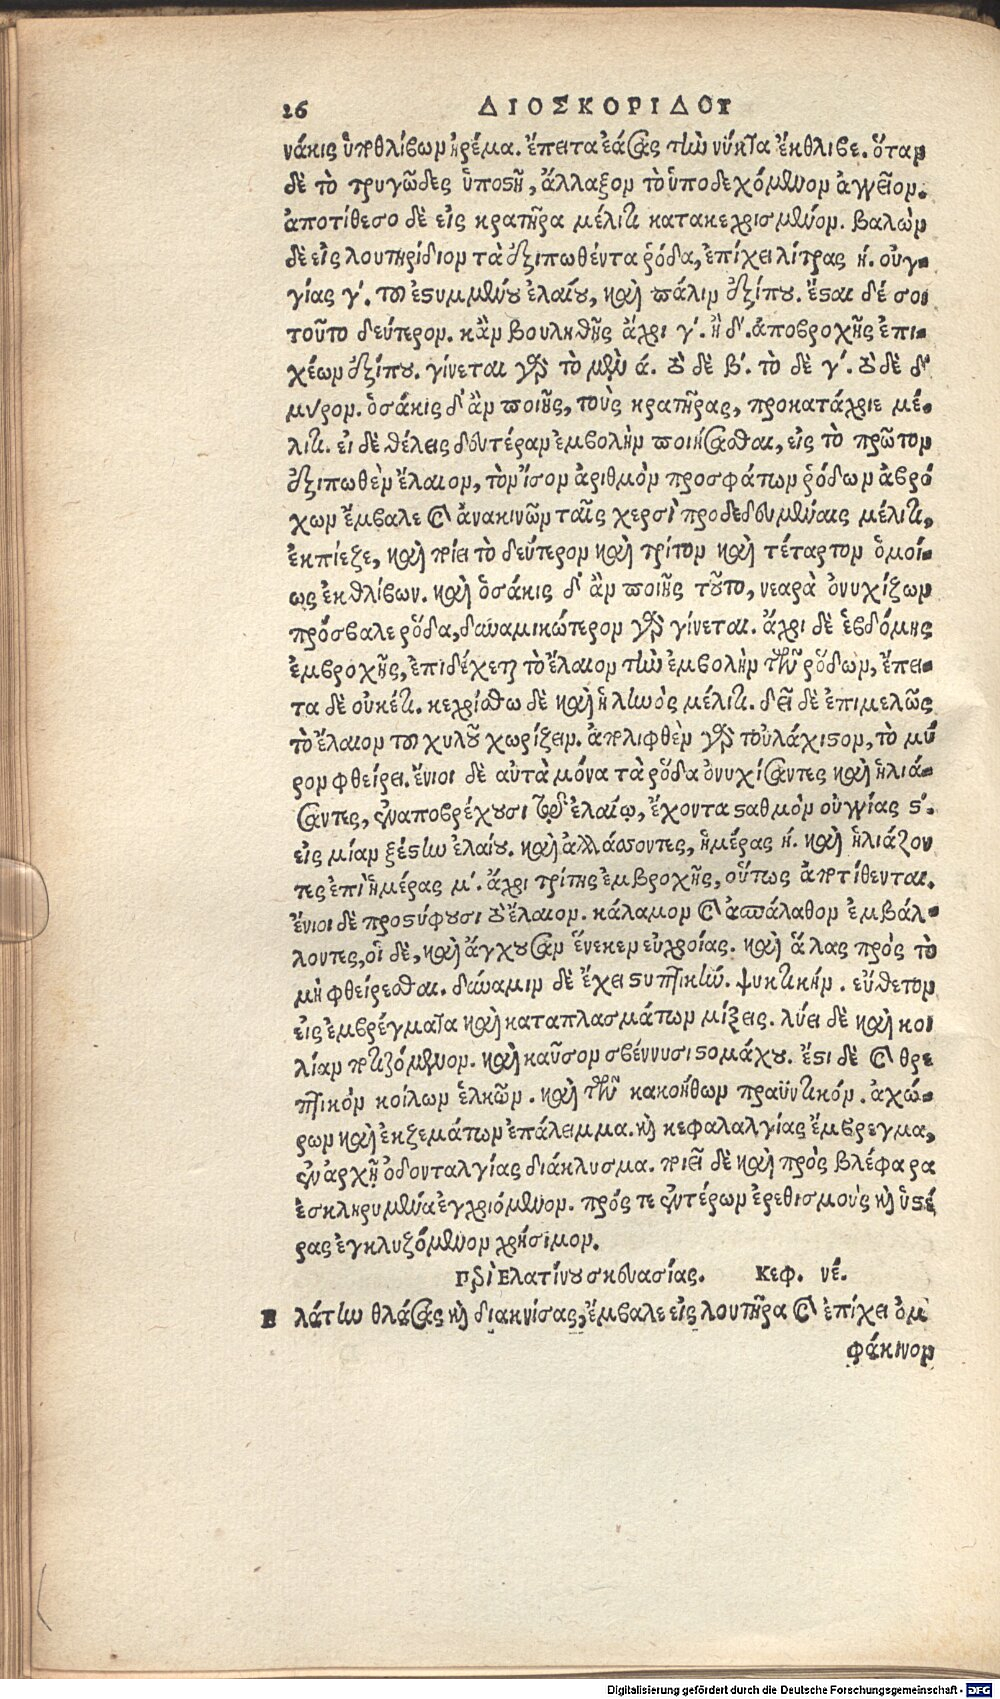 26 ΔΙΟΣΚΟΡΙΔΟΥ
νάκις ὑποθλίβων ἠρέμα. ἔπειτα ἐάσας τὴν νύκτα ἔκθλιβε. ὅταν
δὲ τὸ τρυγῶδες ὑποστῇ, ἄλλαξον τὸ ὑποδεχόμενον ἀγγεῖον.
ἀποτίθεσο δὲ εἰς κρατῆρα μέλιτι κατακεχρισμένον. βαλὼν
δὲ εἰς λουτηρίδιον τὰ ἐξιπωθέντα ῥόδα, ἐπίχει λίτρας ή. οὐγ-
γίας γ΄. τοῦ ἐστυμμένου ἐλαίου, καὶ πάλιν ἐξίπου. ἔσται δέ σοι
τοῦτο δεύτερον. κἂν βουληθῇς ἄχρι γ΄. ἢ δ΄. ἀποβροχῆς ἐπι-
χέων ἐξίπου. γίνεται γὰρ τὸ μὲν ά. τὸ δὲ β΄. τὸ δὲ γ΄. τὸ δὲ δ΄
μύρον. ὁσάκις δ' ἂν ποιῇς, τοὺς κρατῆρας, προκατάχριε μέ-
λιτι. εἰ δὲ θέλεις δευτέραν ἐμβολὴν ποιήσασθαι, εἰς τὸ πρῶτον
ἐξιπωθὲν ἔλαιον, τὸν ἴσον ἀριθμὸν προσφάτων ῥόδων ἀβρό
χων ἔμβαλε καὶ ἀνακινῶν ταῖς χερσὶ προδεδευμέναις μέλιτι,
ἐκπίεζε, καὶ ποίει τὸ δεύτερον καὶ τρίτον καὶ τέταρτον ὁμοί-
ως ἐκθλίβων. καὶ ὁσάκις δ' ἂν ποιῇς τοῦτο, νεαρὰ ὀνυχίζων
πρόσβαλε ῥόδα, δυναμικώτερον γὰρ γίνεται. ἄχρι δὲ ἑβδόμης
ἐμβροχῆς, ἐπιδέχεται τὸ ἔλαιον τὴν ἐμβολὴν τῶν ῥόδων, ἔπει-
τα δὲ οὐκέτι. κεχρίσθω δὲ καὶ ἡ ληνὸς μέλιτι. δεῖ δὲ ἐπιμελῶς
τὸ ἔλαιον τοῦ χυλοῦ χωρίζειν. ἀπολιφθὲν γὰρ τοὐλάχιστον, τὸ μύ
ρον φθείρει. ἔνιοι δὲ αὐτὰ μόνα τὰ ῥόδα ὀνυχίσαντες καὶ ἡλιά-
σαντες, ἐναποβρέχουσι τῷ ἐλαίῳ, ἔχοντα σταθμὸν οὐγγίας ϛ΄.
εἰς μίαν ξέστην ἐλαίου. καὶ ἀλλάσσοντες, ἡμέρας ή. καὶ ἡλιάζον
τες ἐπὶ ἡμέρας μ΄. ἄχρι τρίτης ἐμβροχῆς, οὕτως ἀποτίθενται.
ἔνιοι δὲ προστύφουσι τὸ ἔλαιον. κάλαμον καὶ ἀσπάλαθον ἐμβάλ-
λοντες, οἱ δὲ, καὶ ἄγχουσαν ἕνεκεν εὐχροίας. καὶ ἅλας πρὸς τὸ
μὴ φθείρεσθαι. δύναμιν δὲ ἔχει στυπτικήν. ψυκτικήν. εὔθετον
εἰς ἐμβρέγματα καὶ καταπλασμάτων μίξεις. λύει δὲ καὶ κοι
λίαν ποτιζόμενον. καὶ καῦσον σβέννυσι στομάχου. ἔστι δὲ καὶ θρε
πτικὸν κοίλων ἑλκῶν. καὶ τῶν κακοήθων πραϋντικόν. ἀχώ-
ρων καὶ ἐκζεμάτων ἐπάλειμμα. καὶ κεφαλαλγίας ἔμβρεγμα,
ἐν ἀρχῇ ὀδονταλγίας διάκλυσμα. ποιεῖ δὲ καὶ πρὸς βλέφαρα
ἐσκληρυμμένα ἐγχριόμενον. πρός τε ἐντέρων ἐρεθισμοὺς καὶ ὑστέ
ρας ἐγκλυζόμενον χρήσιμον.
Περὶ Ἐλατίνου σκευασίας. Κεφ. νέ.
Ε λάτην θλάσας καὶ διακνίσας, ἔμβαλε εἰς λουτῆρα καὶ ἐπίχει ὀμ
φάκινον
Digitalisierung gefördert durch die Deutsche Forschungsgemeinschaft - DFG